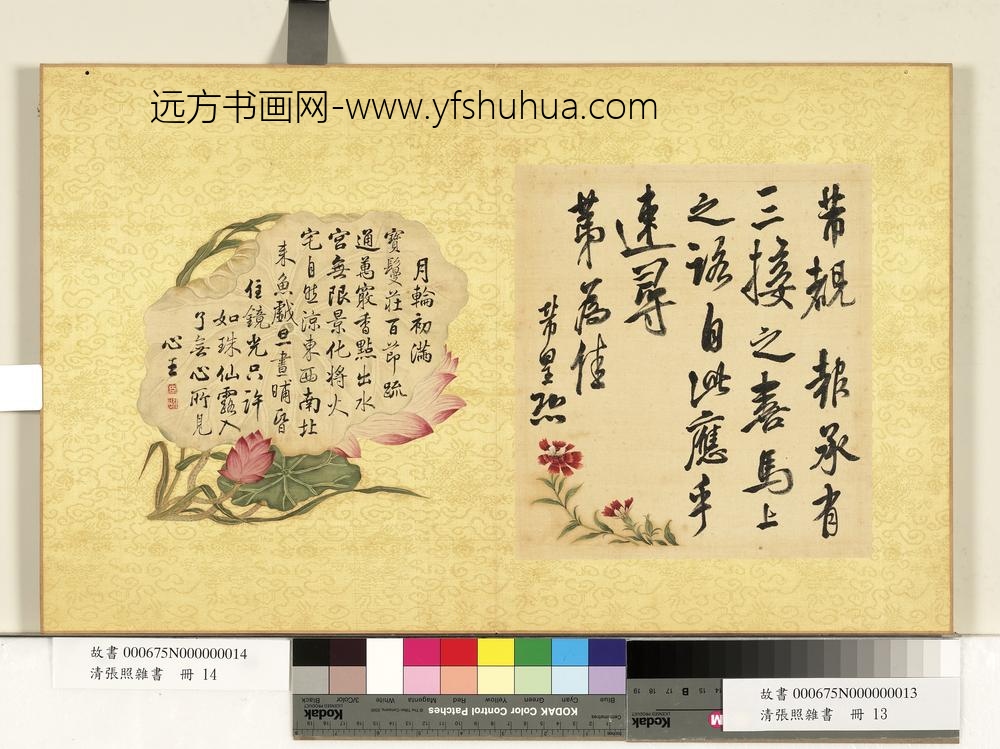 远方书画网-www.yfshuhua.com
芾覩 報承有
三接之喜馬上
之詻自此應乎
速尋
第為佳
芾皇恐
月輪初滿
寶鬘莊百節疏
通萬竅香點出水
宮無限景化將火
宅自然涼東西南北
来魚戲旦晝晡昏
住鏡光只許
如珠仙露入
了無心所見
心王
故書 000675N000000014
清張照雜書 冊 14
Black
3/Color
White
Magenta
Red
Yellow
Green
Cyan
Blue
Kodak
LICENSED PRODUCT
© The Tiffen Company, 2000
KODAK Color Control Patches
Centimetres
Kodak
LICENSED PRODUCT
B
M
故書 000675N000000013
清張照雜書 冊 13